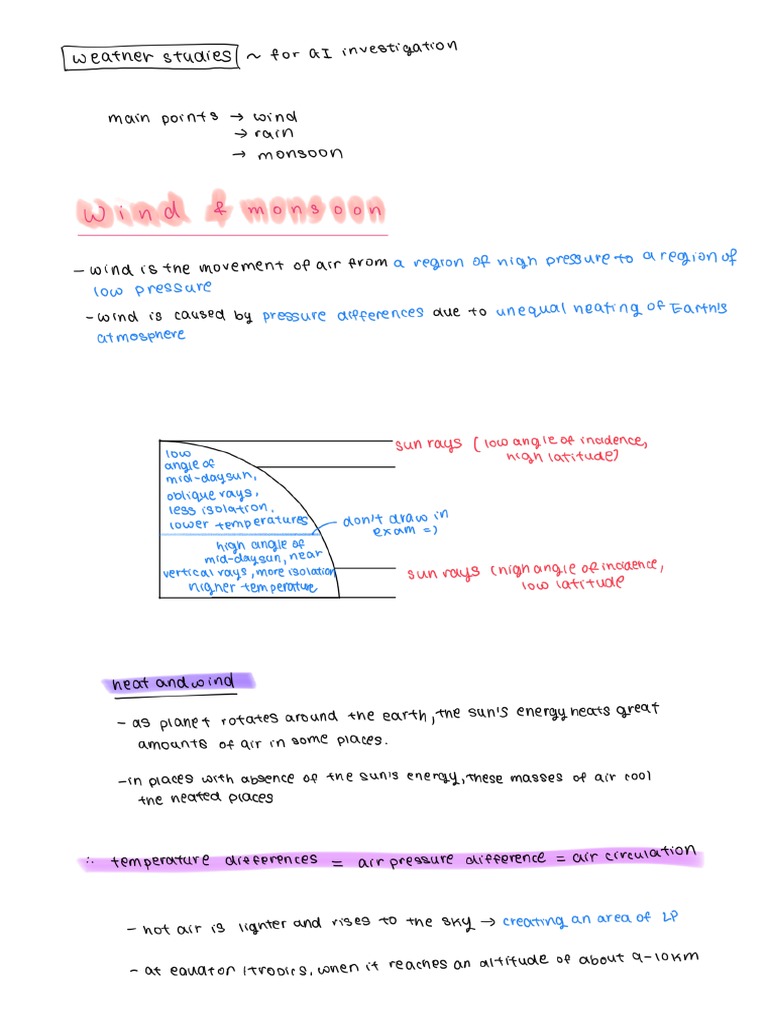 weather studies ~ for GI investigation
main points → wind
→ rain
→ monsoon
wind & monsoon
- wind is the movement of air from a region of high pressure to a region of
low pressure
- wind is caused by pressure differences due to unequal heating of Earth's
atmosphere
sun rays (low angle of incidence,
high latitude)
low
angle of
mid-day sun,
oblique rays,
less isolation,
lower temperatures
don't draw in
exam =)
high angle of
mid-day sun, near
vertical rays, more isolation
higher temperature
sun rays (high angle of incidence,
low latitude
heat and wind
- as planet rotates around the earth, the sun's energy heats great
amounts of air in some places.
- in places with absence of the sun's energy, these masses of air cool
the heated places
∴ temperature differences = air pressure difference = air circulation
- hot air is lighter and rises to the sky → creating an area of LP
- at equator / tropics, when it reaches an altitude of about 9-10km